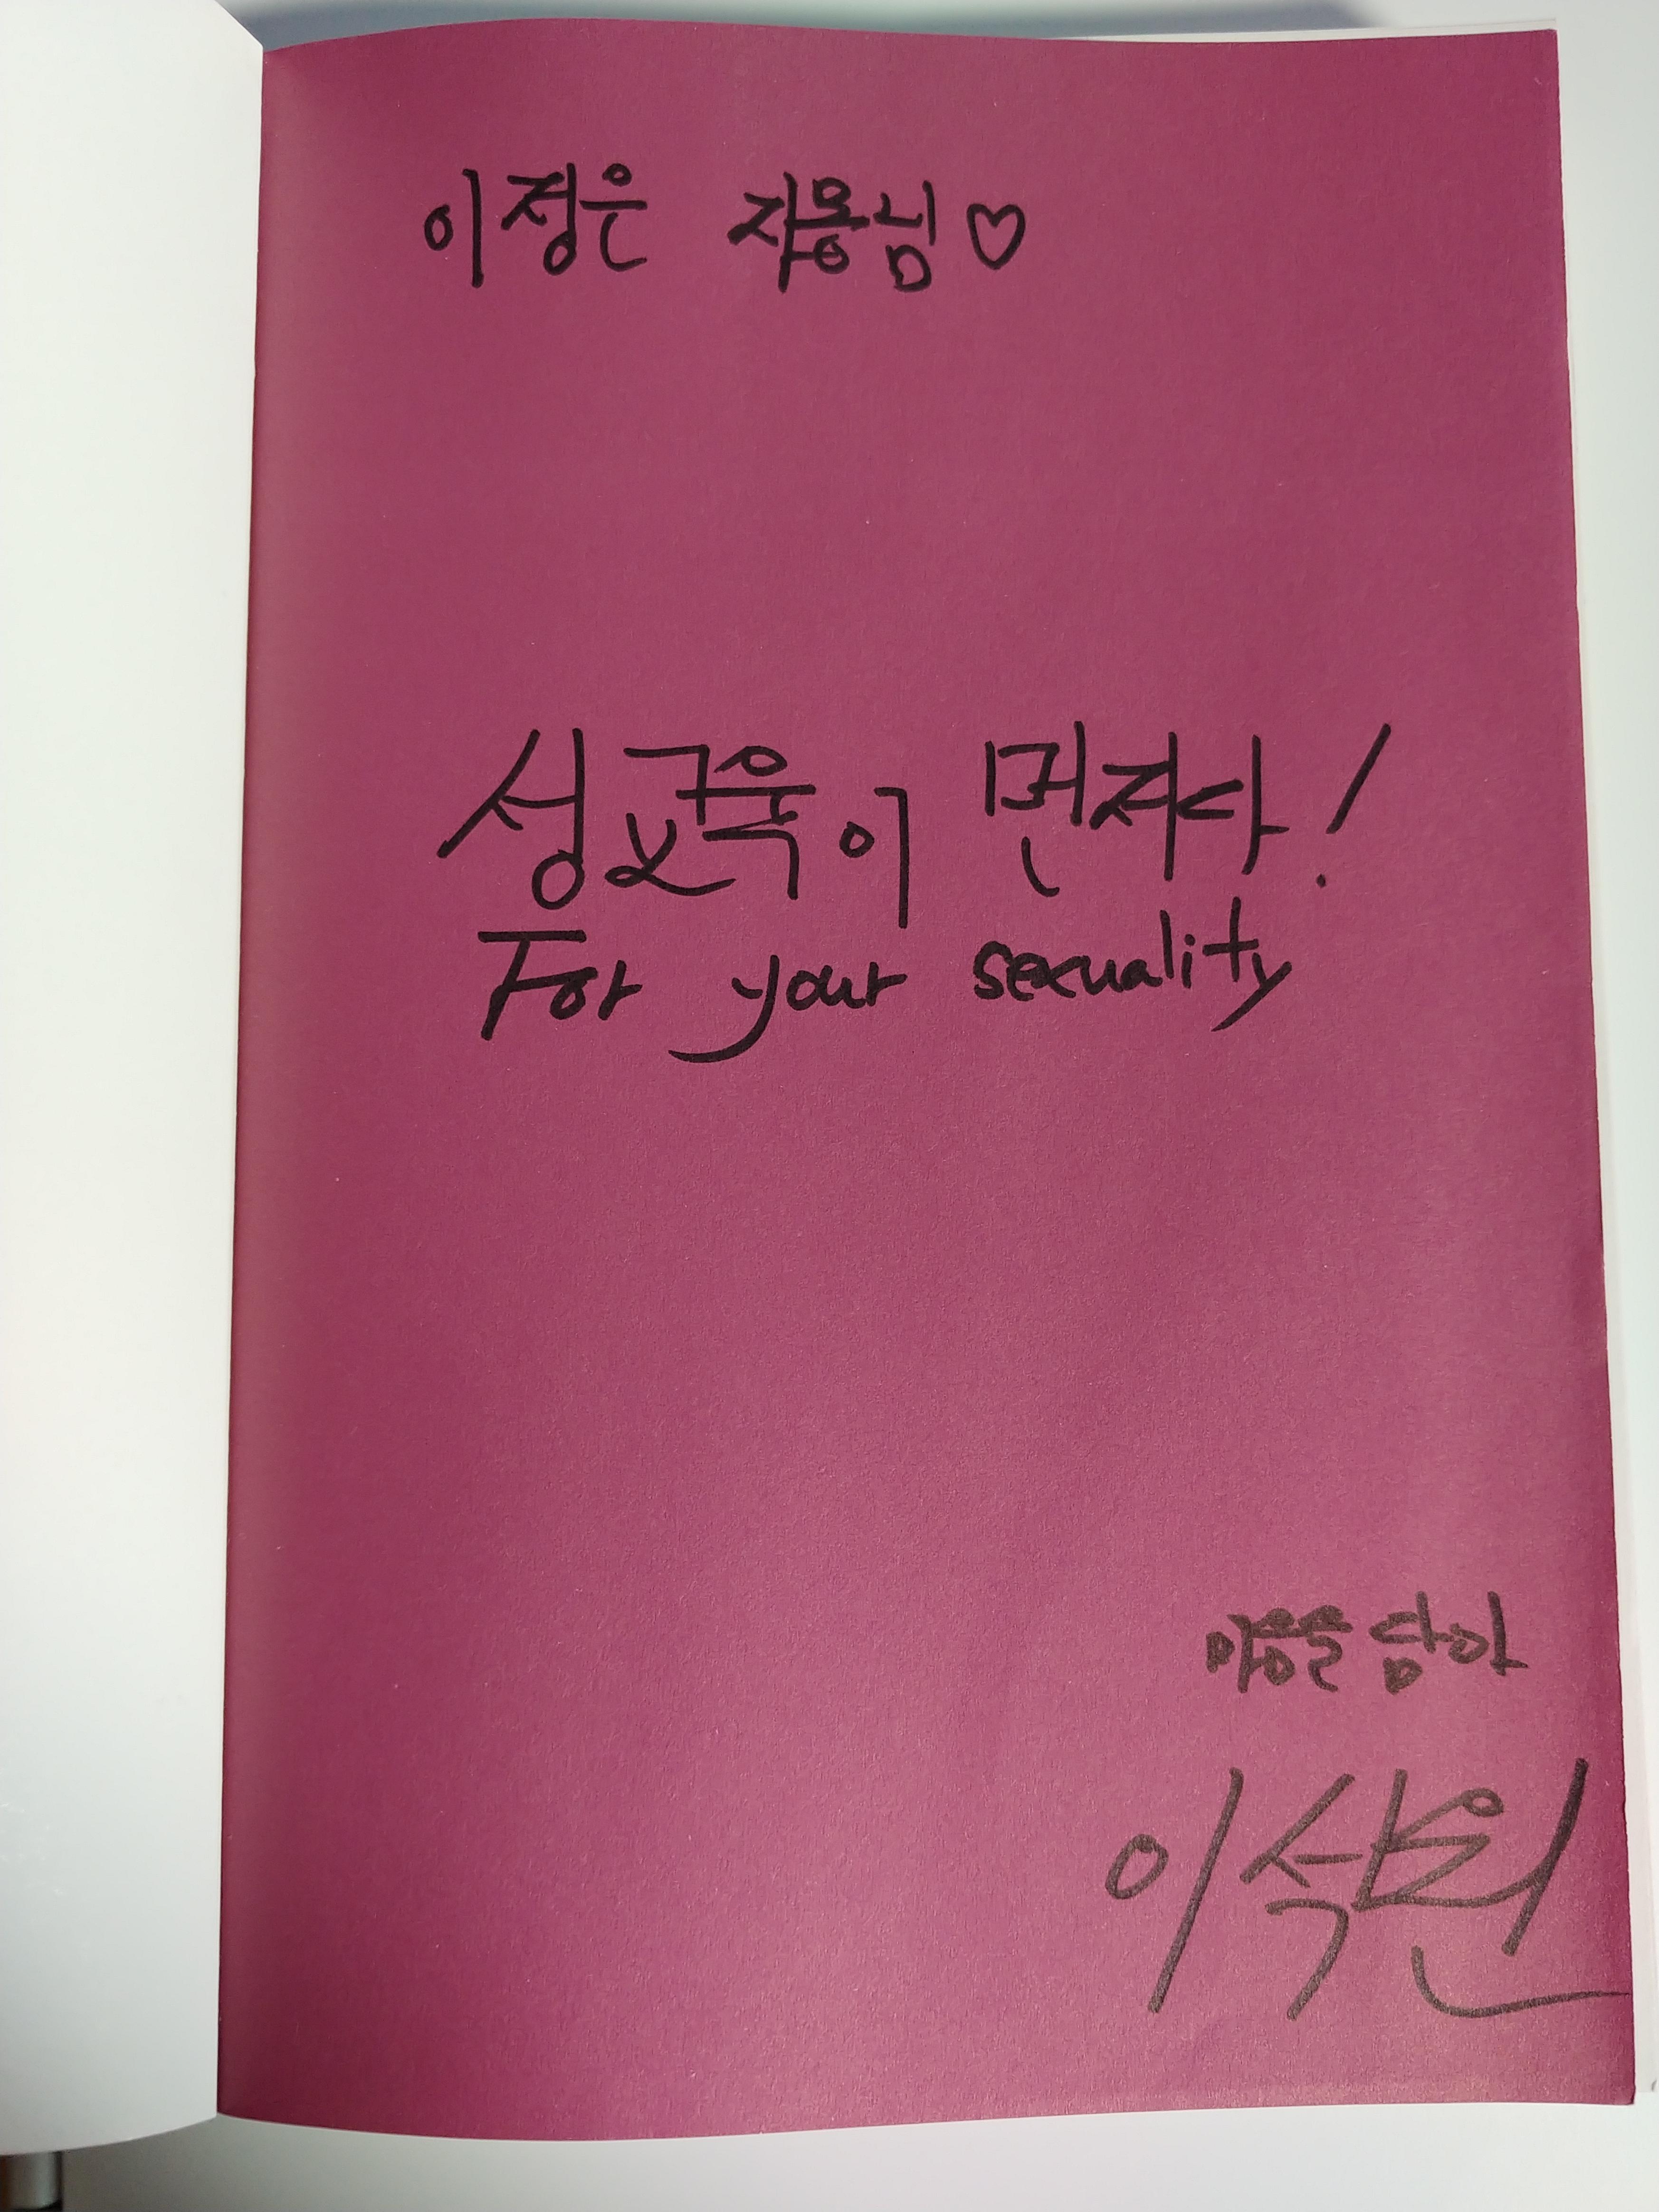 이정은 자용님♡
성교육이 먼저다!
For your sexuality
마음을 담아
이석원